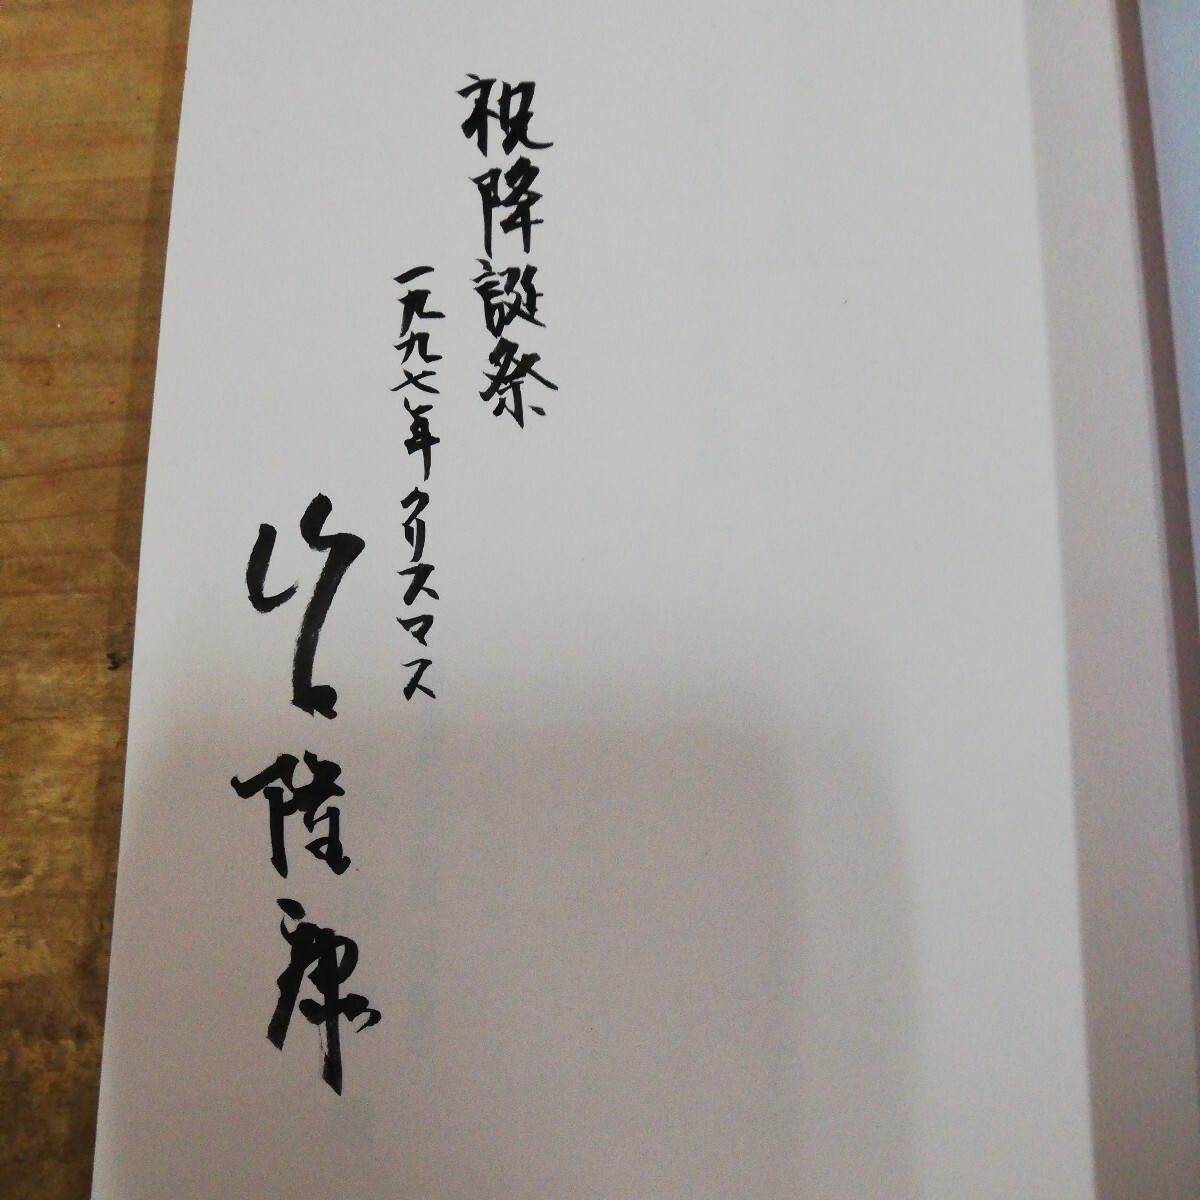 祝降誕祭
一九九七年クリスマス
隆康